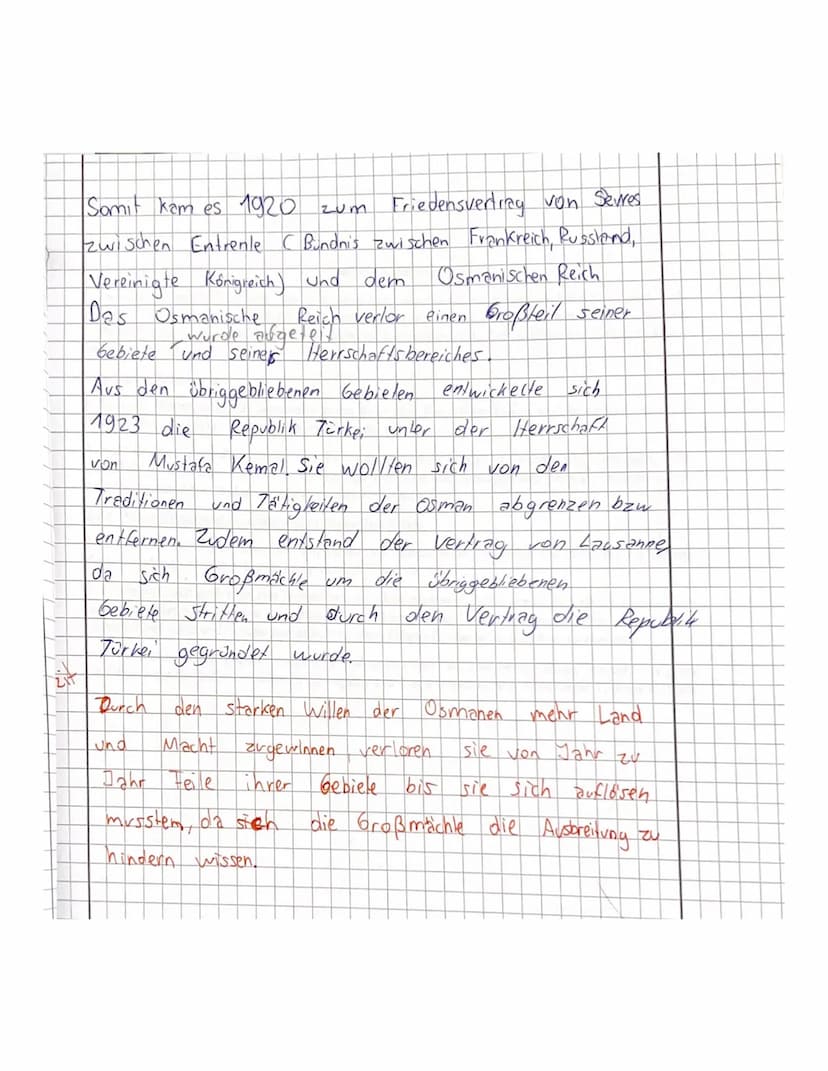 Somit kam es 1920 zum Friedensvertrag von Sèvres
zwischen Entrente (Bündnis zwischen Frankreich, Russland,
Vereinigte Königreich) und dem Osmanischen Reich
Das Osmanische Reich verlor einen Großteil seiner
wurde abgeteilt
Gebiete und seines Herrschaftsbereiches.
Aus den übriggebliebenen Gebieten entwickelte sich
1923 die Republik Türkei unter der Herrschaft
von Mustafa Kemal. Sie wollten sich von den
Traditionen und Tätigkeiten der Osman abgrenzen bzw
entfernen. Zudem entstand der Vertrag von Lausanne,
da sich Großmächte um die übriggebliebenen
Gebiete stritten und durch den Vertrag die Republik
Türkei gegründet wurde.
Durch den starken Willen der Osmanen mehr Land
und Macht zugewinnen, verloren sie von Jahr zu
Jahr Teile ihrer Gebiete bis sie sich auflösen
mussten, da sich die Großmächte die Ausbreitung zu
hindern wissen.